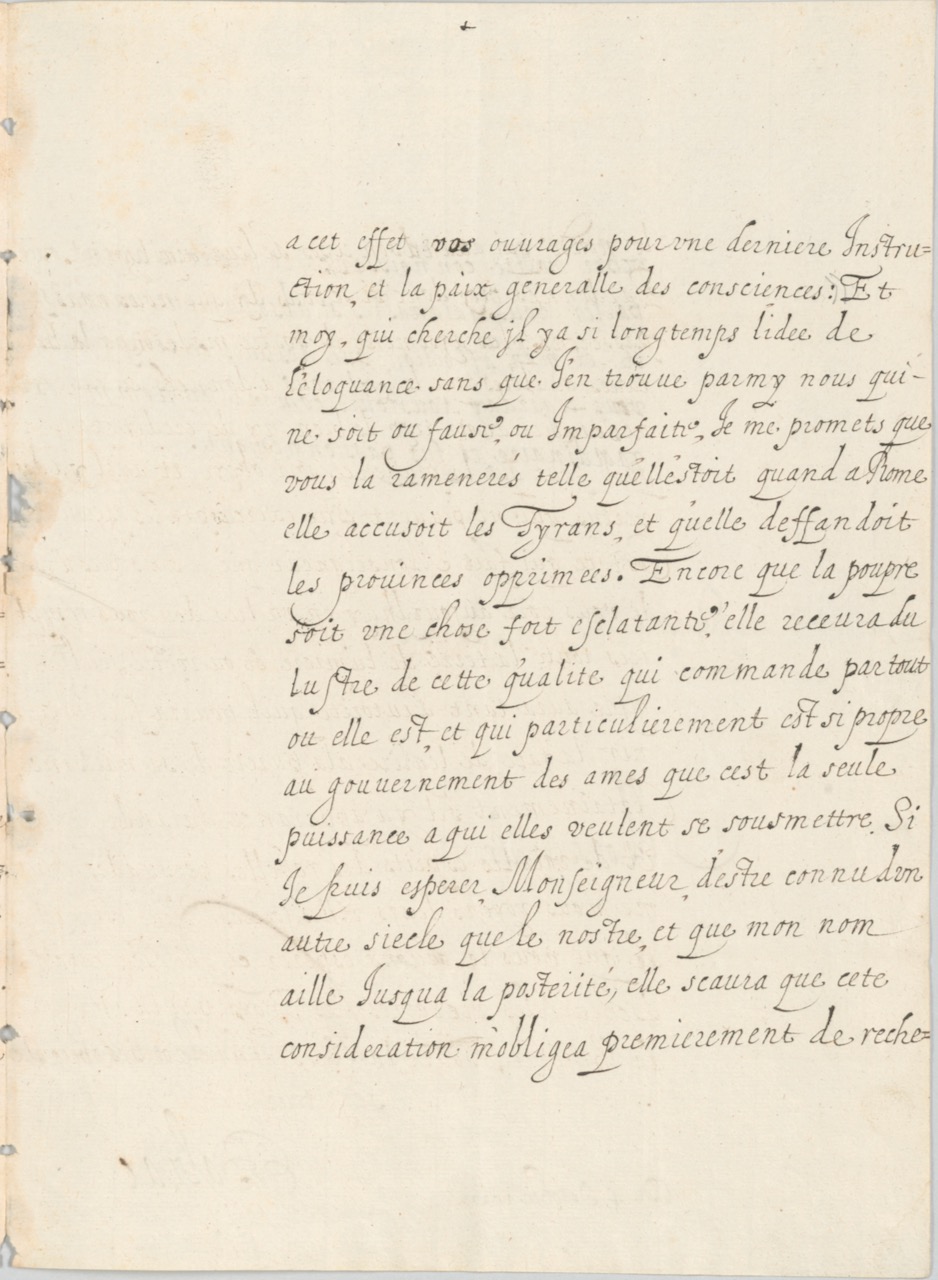 a cet effet vos ouurages pour vne derniere Instru=
ction, et la paix generalle des consciences: Et
moy, qui cherche jl ya si longtemps lidee de
l'eloquance sans que J'en trouue parmy nous qui-
ne soit ou fause, ou Imparfaite, Je me promets que
vous la ramenerés telle qu'ell'estoit quand a Rome
elle accusoit les Tyrans, et quelle deffandoit
les prouinces opprimees. Encore que la poupre
soit vne chose fort esclatante, elle receura du
lustre de cette qualite qui commande par tout
ou elle est, et qui particulierement est si propre
au gouuernement des ames que cest la seule
puissance a qui elles veulent se sousmettre. Si
Je puis esperer, Monseigneur, d'estre connu dvn
autre siecle que le nostre, et que mon nom
aille Jusqua la posterité, elle scaura que cete
consideration m'obligea premierement de reche=